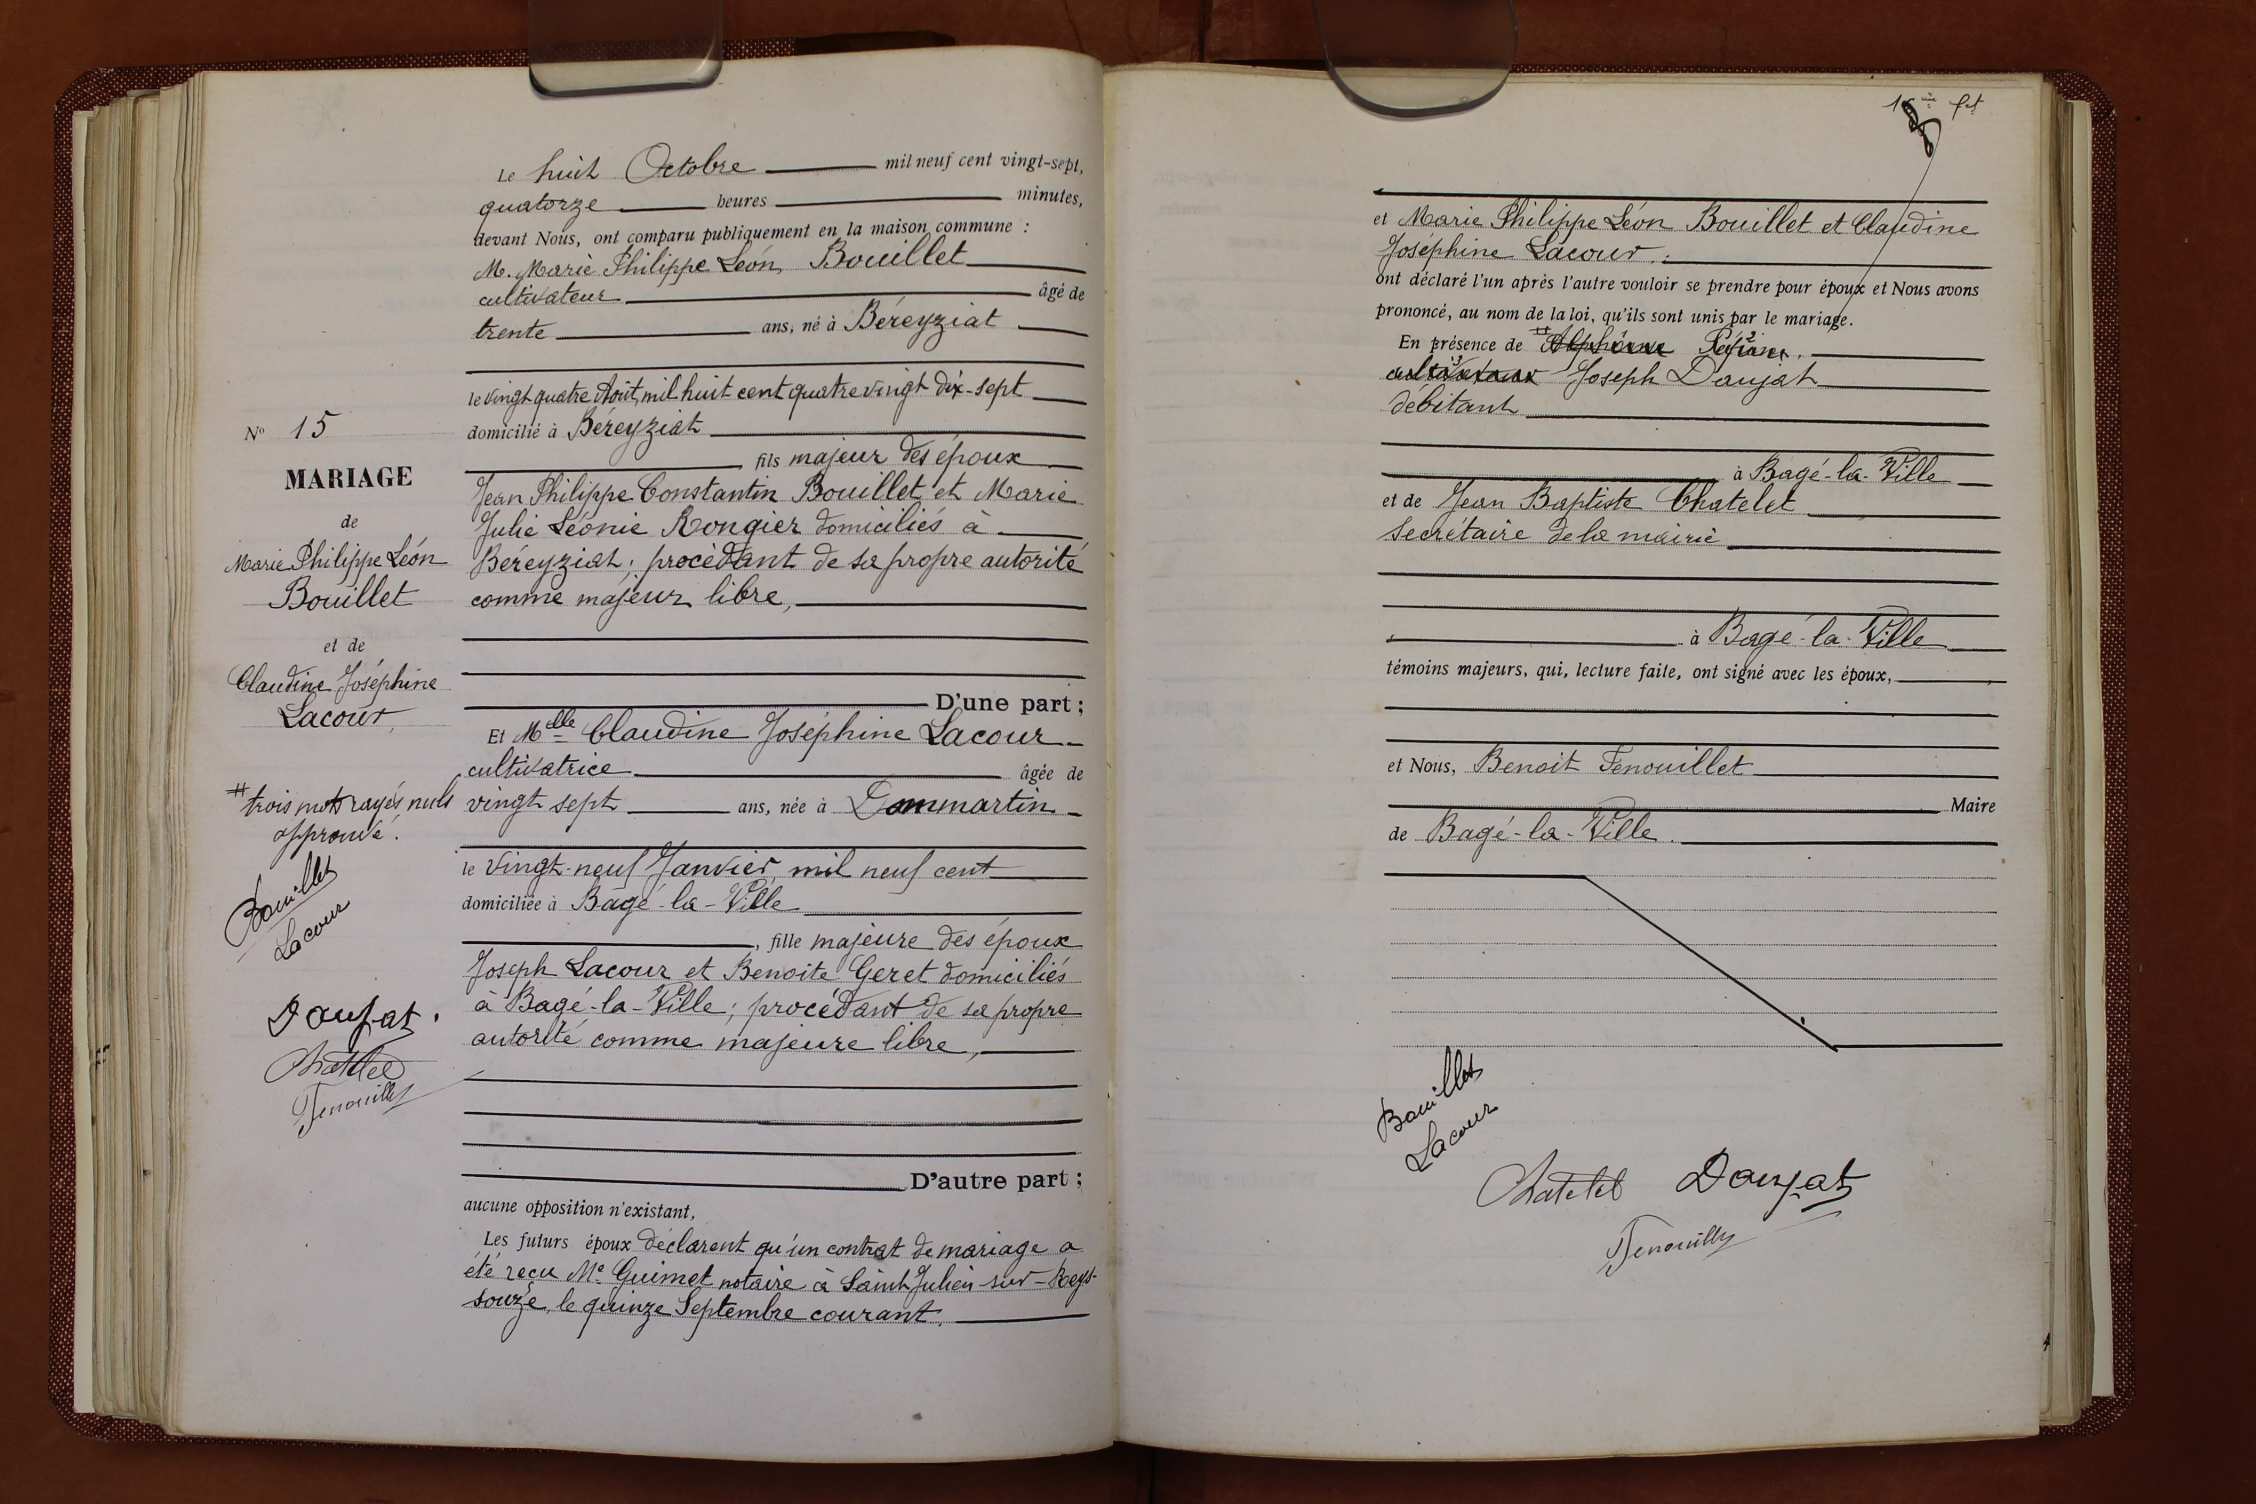 Le huit Octobre mil neuf cent vingt-sept,
quatorze heures minutes,
devant Nous, ont comparu publiquement en la maison commune :
M. Marie Philippe Léon Bouillet
cultivateur âgé de
trente ans, né à Béreyziat
le vingt quatre Août, mil huit cent quatre vingt dix-sept
domicilié à Béreyziat
fils majeur des époux
Jean Philippe Constantin Bouillet et Marie
Julie Léonie Rongier domiciliés à
Béreyziat ; procèdant de sa propre autorité
comme majeur libre,
D'une part ;
Et Mlle Claudine Joséphine Lacour
cultivatrice âgée de
vingt sept ans, née à Dommartin
le vingt-neuf Janvier, mil neuf cent
domiciliée à Bâgé-la-Ville
, fille majeure des époux
Joseph Lacour et Benoite Geret domiciliés
à Bagé-la-Ville ; procédant de sa propre
autorité comme majeure libre,
D'autre part ;
aucune opposition n'existant,
Les futurs époux déclarent qu'un contrat de mariage a
été reçu Me Guimet notaire à Saint Julien-sur-Reys-
souze, le quinze Septembre courant.
No 15
MARIAGE
de
Marie Philippe Léon
Bouillet
et de
Claudine Joséphine
Lacour,
# trois mots rayés nuls
approuvé.
Bouillet
Lacour
Daujat.
Chatelet
Fenouillet
et Marie Philippe Léon Bouillet et Claudine
Joséphine Lacour.
ont déclaré l'un après l'autre vouloir se prendre pour époux et Nous avons
prononcé, au nom de la loi, qu'ils sont unis par le mariage.
En présence de # Alphonse
cultivateur Joseph Daujat
débitant
à Bagé-la-Ville
et de Jean Baptiste Chatelet
secrétaire de la mairie
à Bagé-la-Ville
témoins majeurs, qui, lecture faite, ont signé avec les époux,
et Nous, Benoit Fenouillet
Maire
de Bagé-la-Ville.
Bouillet
Lacour
Chatelet Daujat
Fenouillet